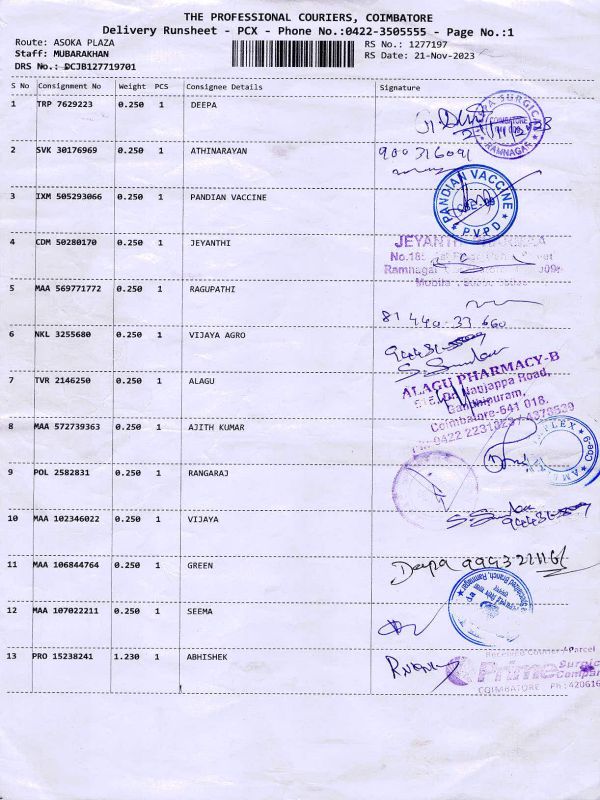 THE PROFESSIONAL COURIERS, COIMBATORE
Delivery Runsheet - PCX - Phone No.:0422-3505555 - Page No.:1
Route: ASOKA PLAZA
RS No.: 1277197
Staff: MUBARAKHAN
RS Date: 21-Nov-2023
DRS No.: DCJB127719701
S No Consignment No Weight PCS Consignee Details Signature
1 TRP 7629223 0.250 1 DEEPA
SURGICAL COIMBATORE RAMNAGAR
2 SVK 30176969 0.250 1 ATHINARAYAN
3 IXM 505293066 0.250 1 PANDIAN VACCINE
PANDIAN VACCINE P.V.P.D
4 CDM 50280170 0.250 1 JEYANTHI
JEYANTHI
No.185
Ramnagar
5 MAA 569771772 0.250 1 RAGUPATHI
81 440 33 660
6 NKL 3255680 0.250 1 VIJAYA AGRO
7 TVR 2146250 0.250 1 ALAGU
ALAGU PHARMACY-B
Nanjappa Road,
Gandhipuram,
Coimbatore-641 018.
PH:0422 2231023 / 4379539
8 MAA 572739363 0.250 1 AJITH KUMAR
9 POL 2582831 0.250 1 RANGARAJ
10 MAA 102346022 0.250 1 VIJAYA
11 MAA 106844764 0.250 1 GREEN
Deepa
12 MAA 107022211 0.250 1 SEEMA
Specialized Branch Ramnagar
13 PRO 15238241 1.230 1 ABHISHEK
Received Courier / Parcel
Prime Surgical Company
COIMBATORE PH:420616